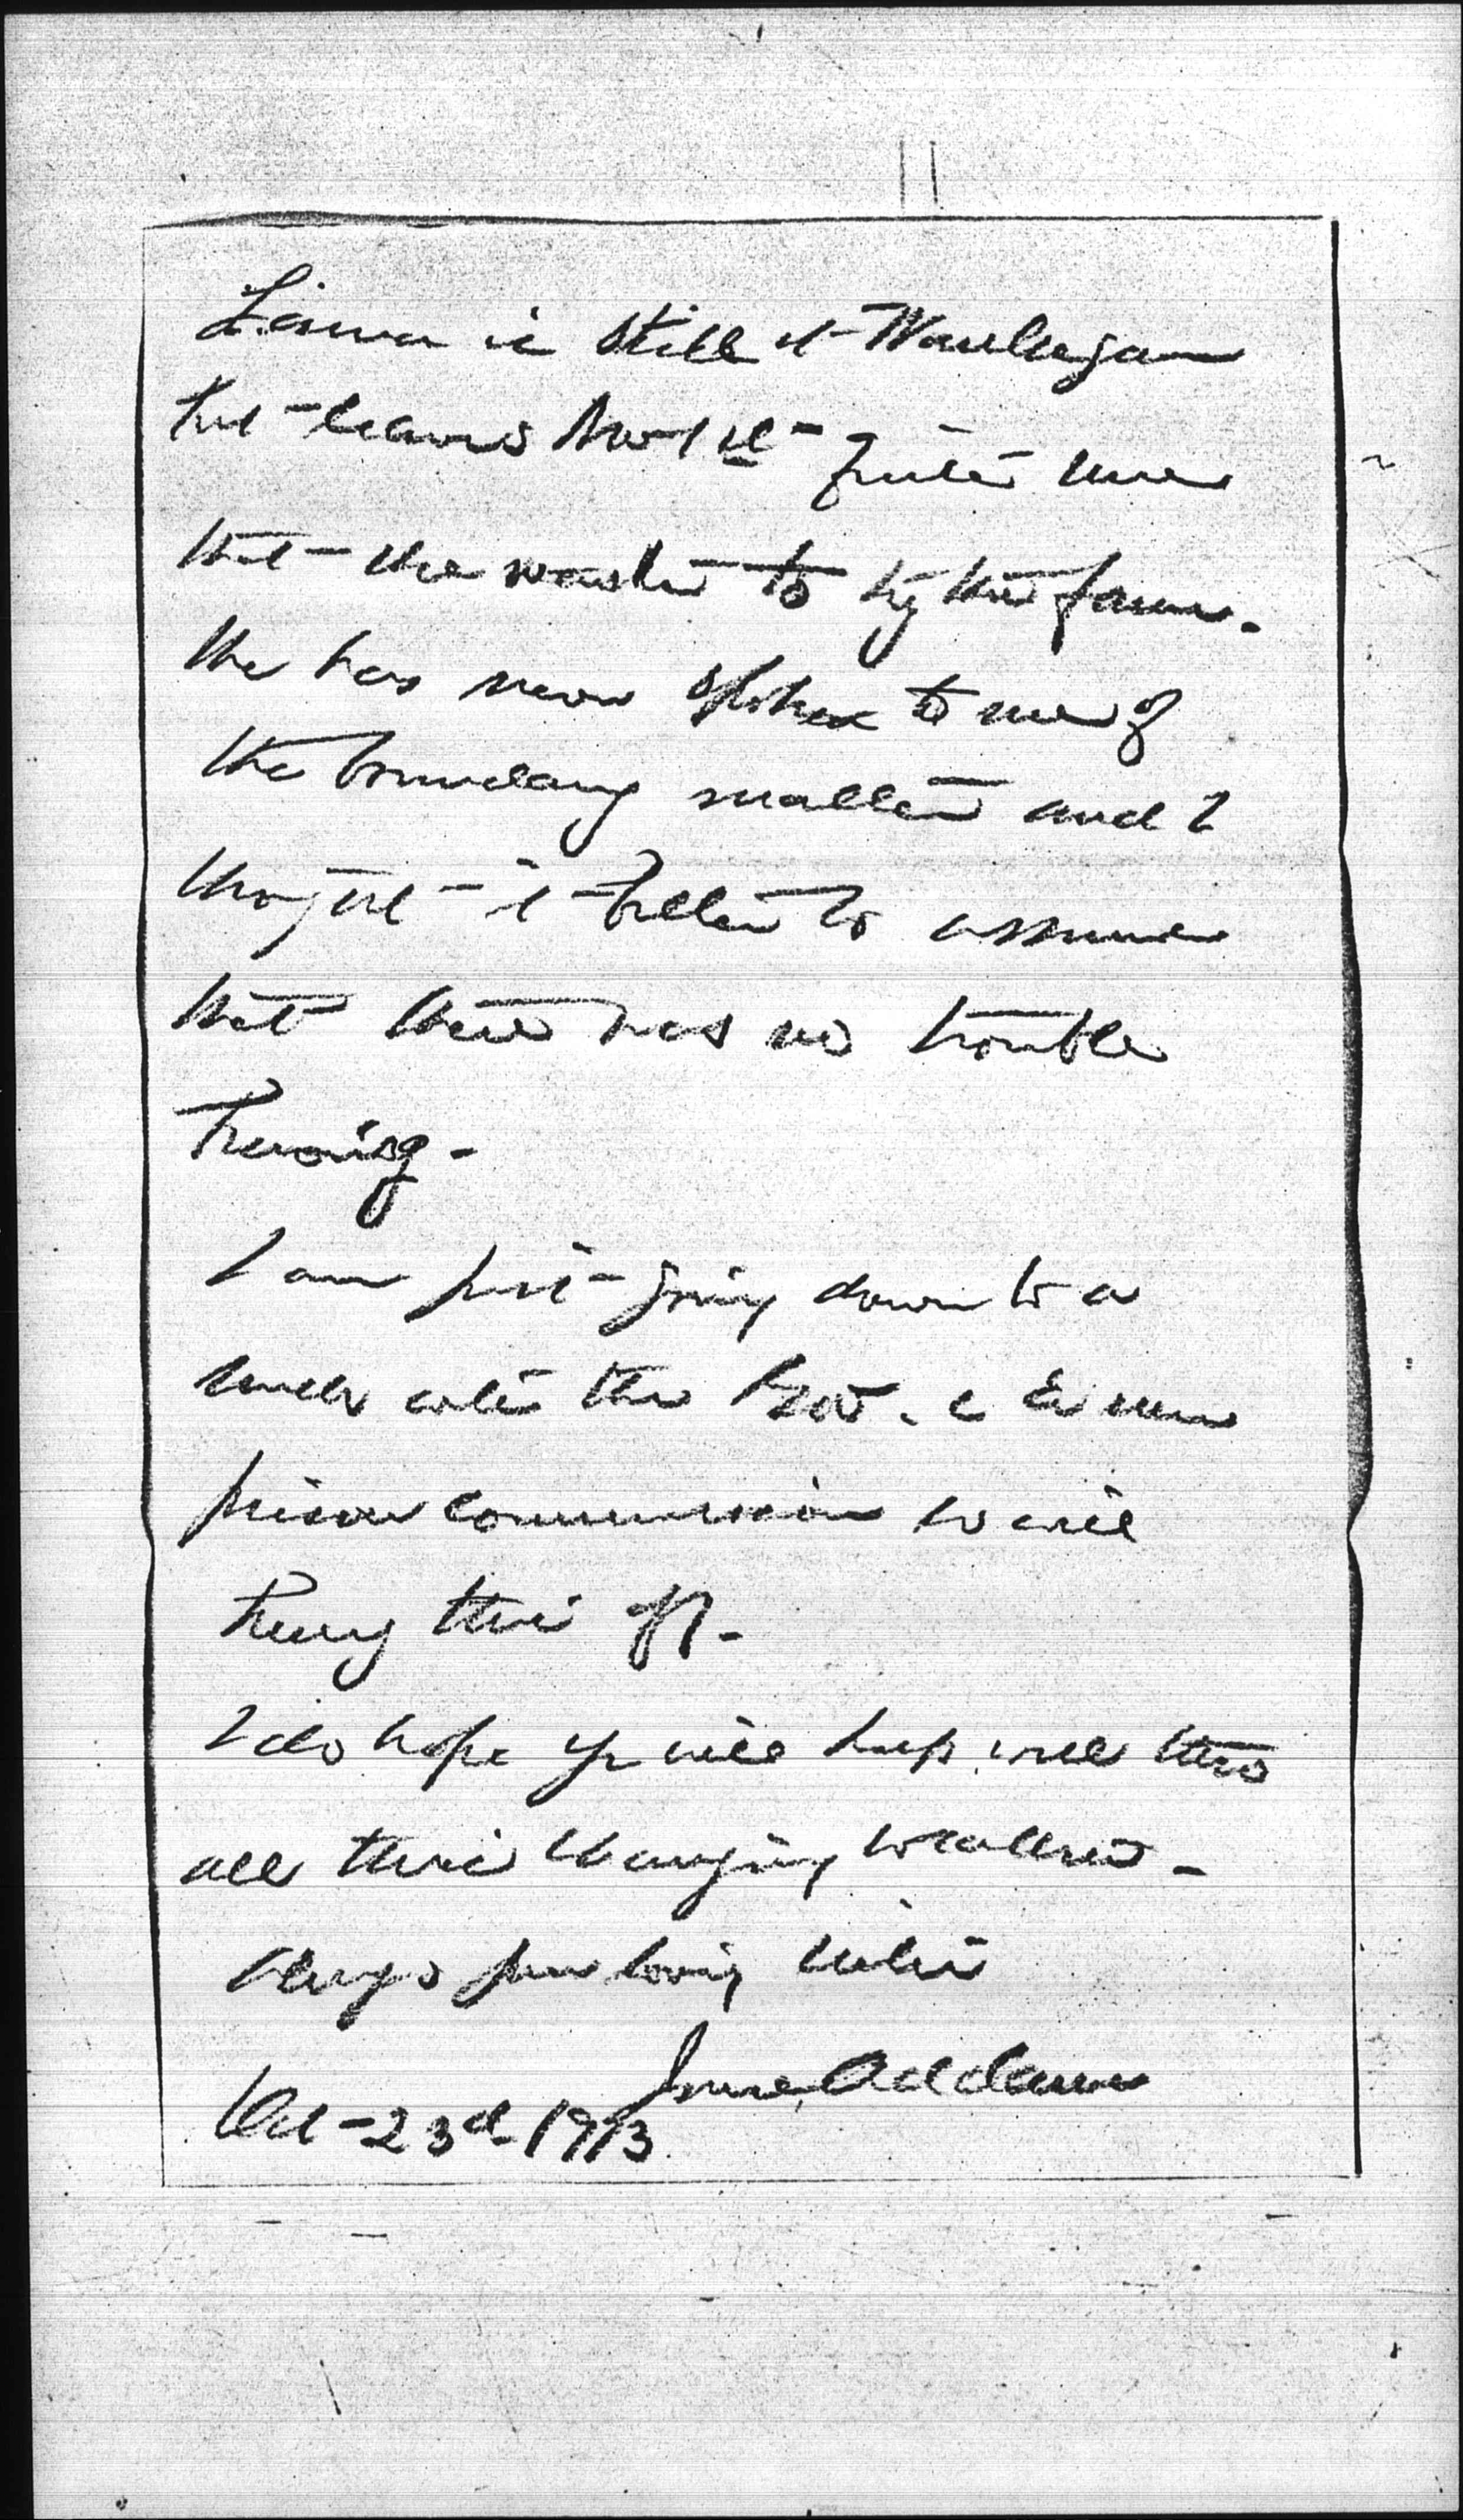 Linn is still at Waukegan
but leaves Nov 1st quite sure
that she wants to try the farm.
She has never spoken to me of
the boundary matter and I
thought it better to assume
that there was no trouble
brewing.
I am just going down to a
lunch with the Gov. &
prison commission
this aft.
I do hope you will keep well thro
all this changing weather.
Always your loving sister
Jane Addams
Oct 23d 1913